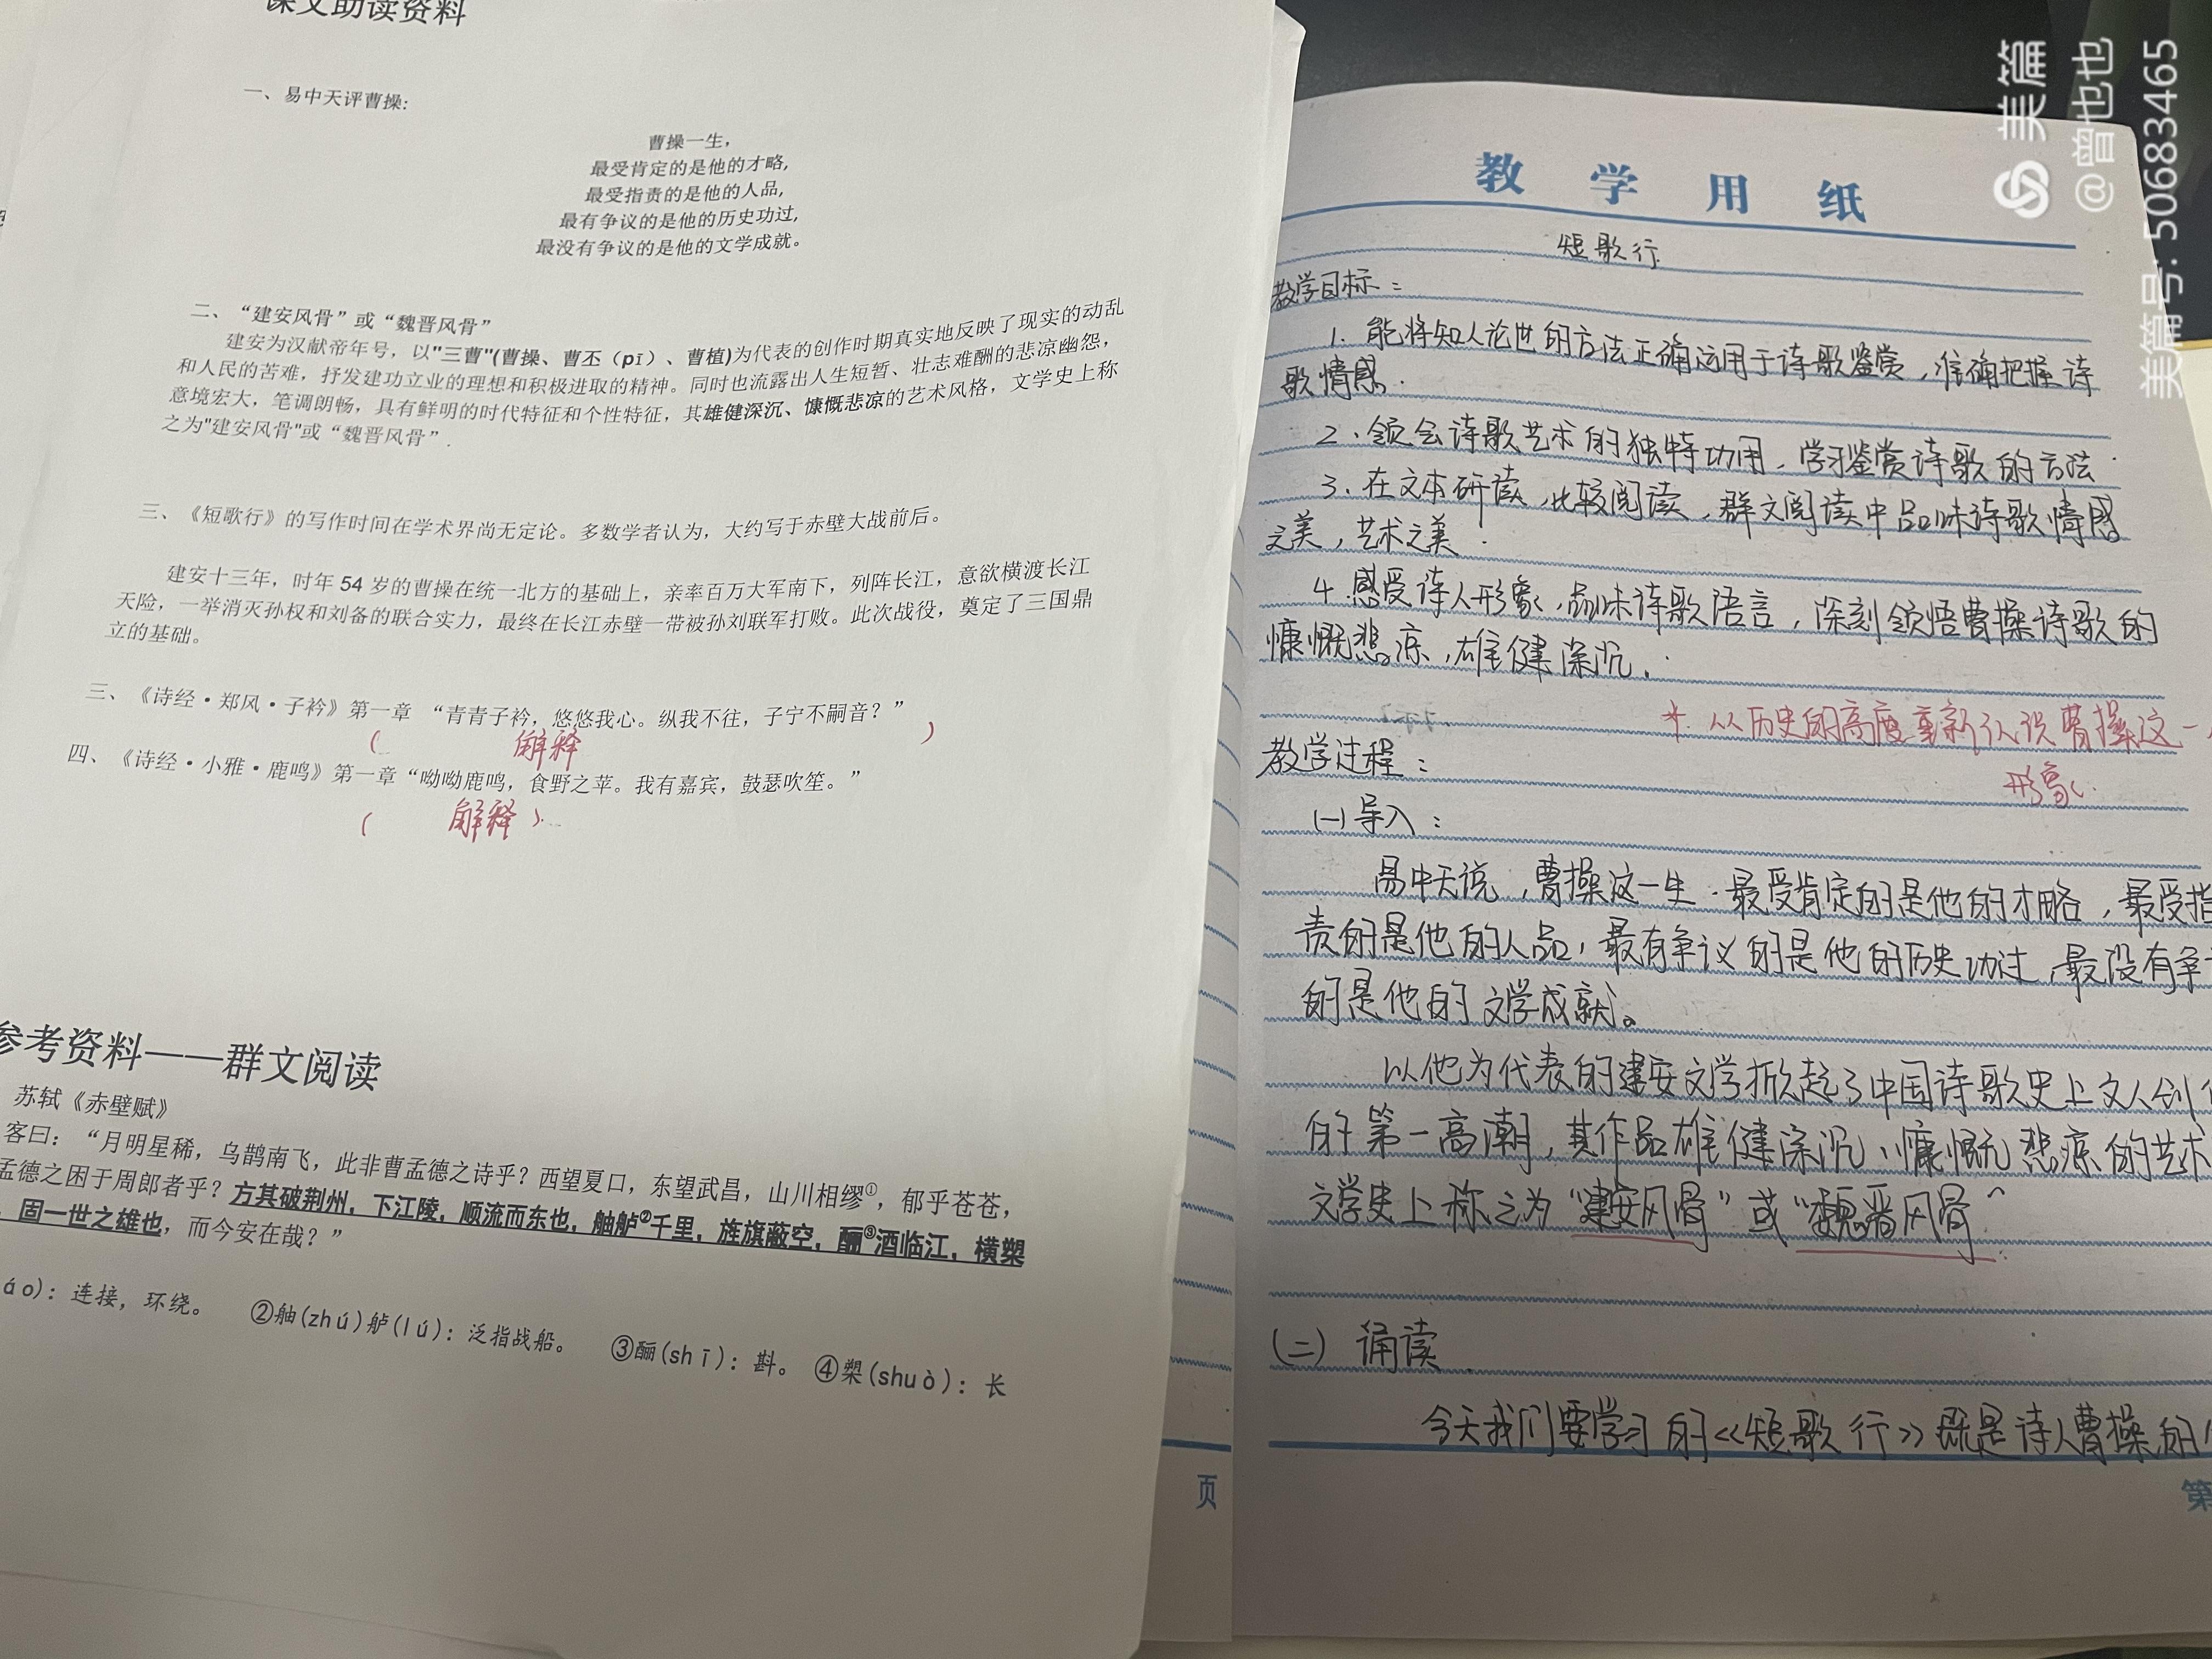 课文助读资料
一、易中天评曹操:
曹操一生，
最受肯定的是他的才略，
最受指责的是他的人品，
最有争议的是他的历史功过，
最没有争议的是他的文学成就。
二、“建安风骨”或“魏晋风骨”
建安为汉献帝年号，以"三曹"(曹操、曹丕（pī）、曹植)为代表的创作时期真实地反映了现实的动乱
和人民的苦难，抒发建功立业的理想和积极进取的精神。同时也流露出人生短暂、壮志难酬的悲凉幽怨，
意境宏大，笔调朗畅，具有鲜明的时代特征和个性特征，其雄健深沉、慷慨悲凉的艺术风格，文学史上称
之为"建安风骨"或“魏晋风骨”.
三、《短歌行》的写作时间在学术界尚无定论。多数学者认为，大约写于赤壁大战前后。
建安十三年，时年 54 岁的曹操在统一北方的基础上，亲率百万大军南下，列阵长江，意欲横渡长江
天险，一举消灭孙权和刘备的联合实力，最终在长江赤壁一带被孙刘联军打败。此次战役，奠定了三国鼎
立的基础。
三、《诗经·郑风·子衿》第一章 “青青子衿，悠悠我心。纵我不往，子宁不嗣音？”
( 解释 )
四、《诗经·小雅·鹿鸣》第一章“呦呦鹿鸣，食野之苹。我有嘉宾，鼓瑟吹笙。”
( 解释 )
参考资料——群文阅读
苏轼《赤壁赋》
客曰：“月明星稀，乌鹊南飞，此非曹孟德之诗乎？西望夏口，东望武昌，山川相缪①，郁乎苍苍，
孟德之困于周郎者乎？方其破荆州，下江陵，顺流而东也，舳舻②千里，旌旗蔽空，酾③酒临江，横槊
，固一世之雄也，而今安在哉？”
áo)：连接，环绕。 ②舳(zhú)舻(lú)：泛指战船。 ③酾(shī)：斟。 ④槊(shuò)：长
页
教学用纸
短歌行
教学目标：
1. 能将知人论世的方法正确运用于诗歌鉴赏，准确把握诗
歌情感.
2、领会诗歌艺术的独特功用，学习鉴赏诗歌的方法.
3、在文本研读、比较阅读、群文阅读中品味诗歌情感
之美，艺术之美.
4.感受诗人形象，品味诗歌语言，深刻领悟曹操诗歌的
慷慨悲凉，雄健深沉.
* 从历史的高度重新认识曹操这一
形象.
教学过程：
(一)导入：
易中天说，曹操这一生.最受肯定的是他的才略，最受指
责的是他的人品，最有争议的是他的历史功过，最没有争
的是他的文学成就。
以他为代表的建安文学掀起了中国诗歌史上文人创
的第一高潮，其作品雄健深沉、慷慨悲凉的艺术
文学史上称之为“建安风骨”或“魏晋风骨”
(二) 诵读.
今天我们要学习的《短歌行》既是诗人曹操的
第
美篇
@曾也也
美篇号: 50683465